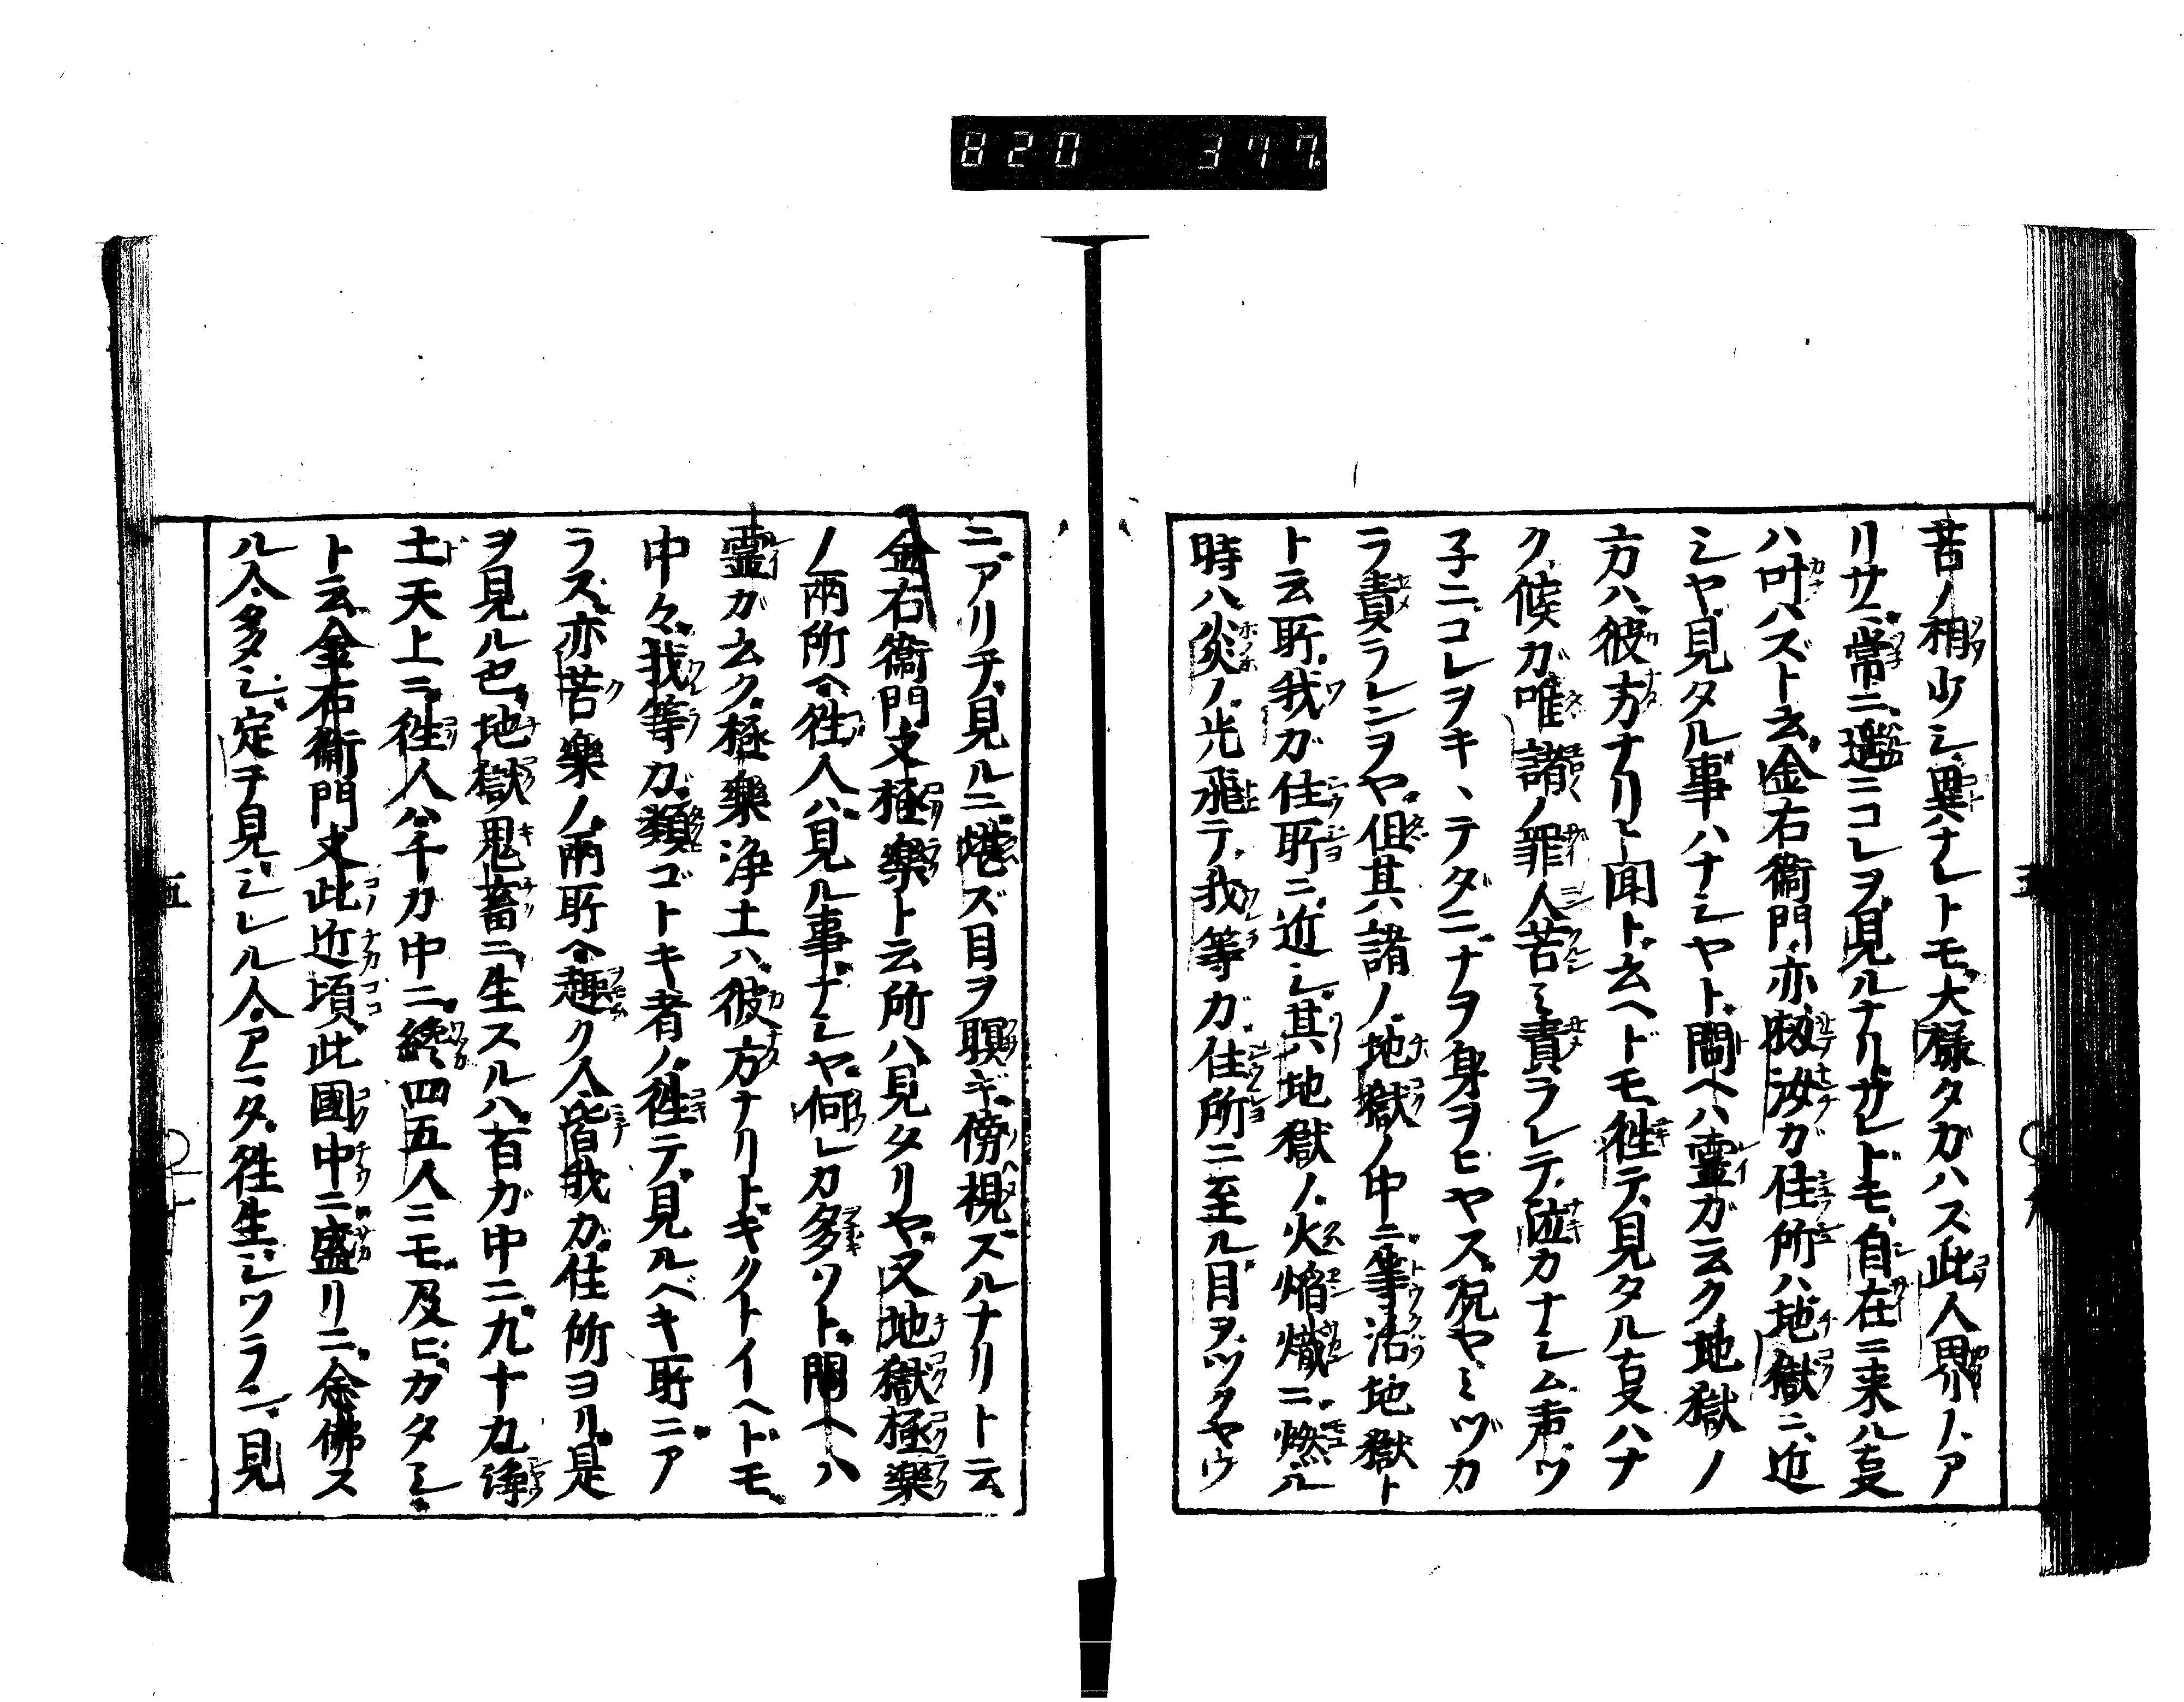 820 377
苦ノ相少シ異ナレトモ大様タガハス此人界ノア
リサマ常ニ遥ニコレヲ見ルナリサレドモ自在ニ来ル叓
ハ叶ハズト云金右衞門亦扨汝ガ住所ハ地獄ニ近
シヤ見タル事ハナシヤト問ヘハ霊ガ云ク地獄ノ
方ハ彼方ナリト聞ト云ヘドモ徃テ見タル叓ハナ
ク候ガ唯諸ノ罪人苦ミ責ラレテ泣カナシム声ツ
子ニコレヲキヽテダニナヲ身ヲヒヤス况ヤミヅカ
ラ責ラレンヲヤ但其ハ諸ノ地獄ノ中ニ等活地獄ト
ト云所我ガ住所ニ近シ其地獄ノ火焔熾ニ燃ル
時ハ炎ノ光飛テ我等ガ住所ニ至ル目ヲツクヤウ
ニアリテ見ルニ堪ズ目ヲ瞑ギ傍視ズルナリト云
金右衞門又極樂ト云所ハ見タリヤ又地獄極樂
ノ兩所ヘ徃人ハ見ル事ナシヤ何レカ多ソト問ヘハ
霊ガ云ク極樂浄土ハ彼方ナリトキクトイヘドモ
中々我等カ類ゴトキ者ノ徃テ見ルベキ所ニア
ラズ亦苦樂ノ兩所ヘ趣ク人皆我カ住所ヨリ是
ヲ見ル也地獄鬼畜ニ生スルハ百ガ中ニ九十九浄
土天上ニ徃人ハ千カ中ニ纔四五人ニモ及ビカタシ
ト云金右衞門又此近頃此國中ニ盛リニ念佛ス
ル人多シ定テ見シレル人アマタ徃生シツランニ見
五